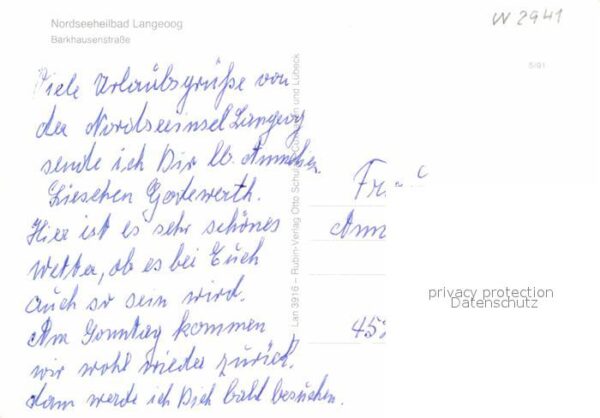 Nordseeheilbad Langeoog
Barkhausenstraße
W 2941
5/91
Viele Urlaubsgrüße von
der Nordseeinsel Langeoog
sende ich Dir lb. Annchen
Lieschen
Hier ist es sehr schönes
Wetter, ob es bei Euch
auch so sein wird.
Am Sonntag kommen
wir wohl wieder zurück,
dann werde ich Dich bald besuchen.
Lan 3916 – Rubin-Verlag Otto und Lübeck
Fr
Ann
45
privacy protection
Datenschutz